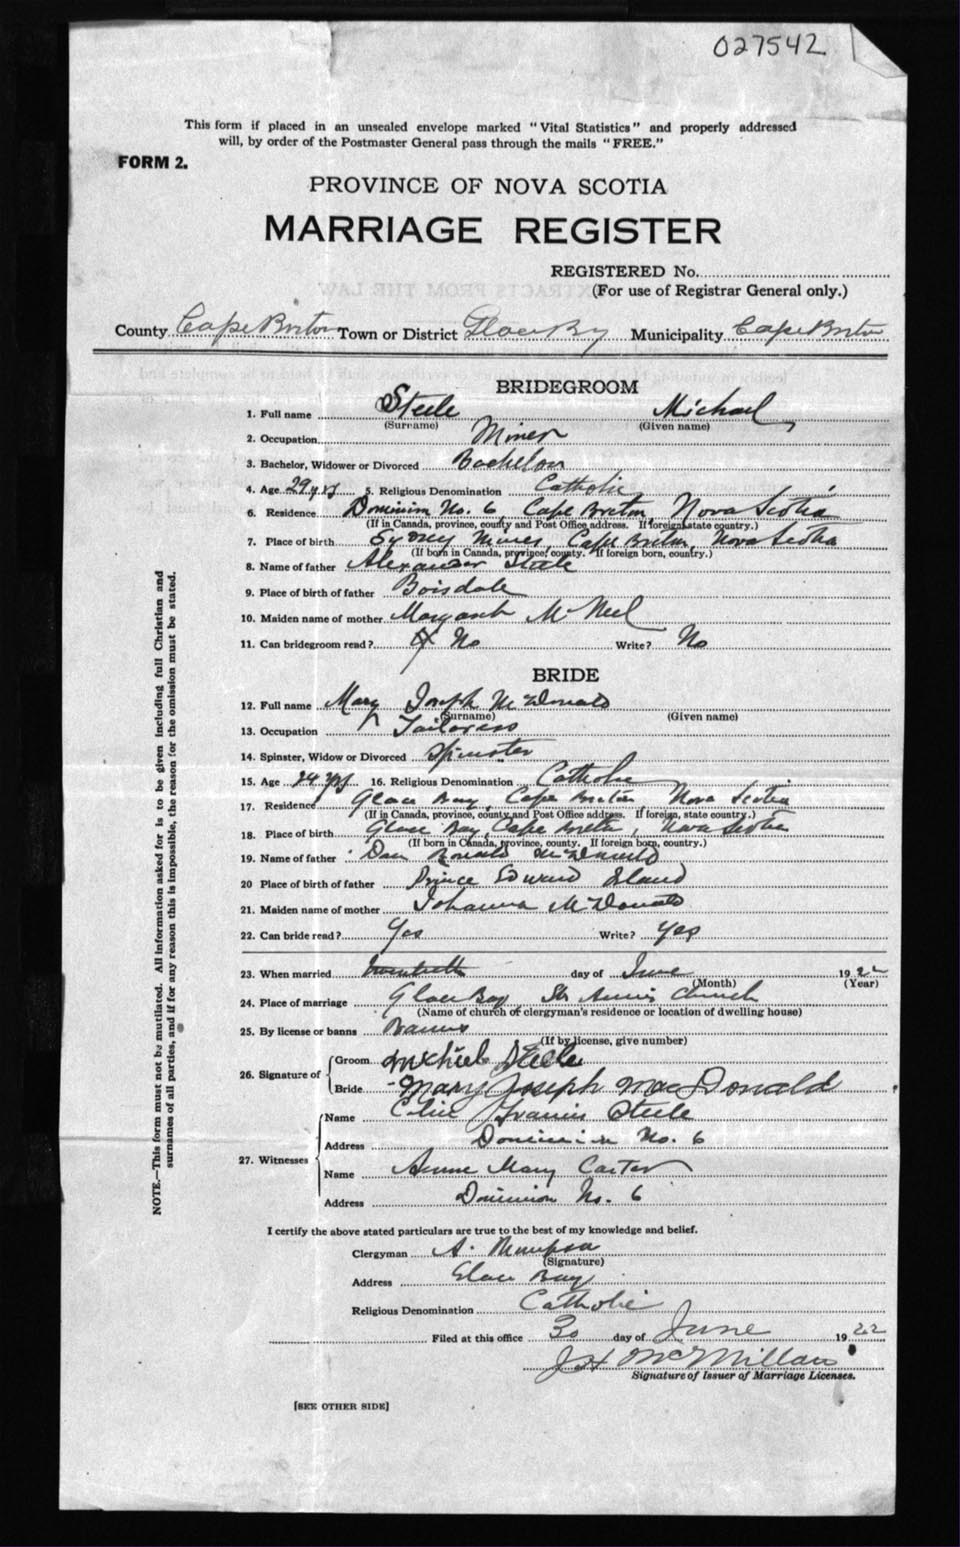 027542
This form if placed in an unsealed envelope marked "Vital Statistics" and properly addressed
will, by order of the Postmaster General pass through the mails "FREE."
FORM 2.
PROVINCE OF NOVA SCOTIA
MARRIAGE REGISTER
REGISTERED No.
(For use of Registrar General only.)
County Cape Breton Town or District Glace Bay Municipality Cape Breton
BRIDEGROOM
1. Full name Steele Michael
(Surname) (Given name)
2. Occupation Miner
3. Bachelor, Widower or Divorced Bachelor
4. Age 29 yrs 5. Religious Denomination Catholic
6. Residence Dominion No. 6, Cape Breton, Nova Scotia
(If in Canada, province, county and Post Office address. If foreign state country.)
7. Place of birth Sydney Mines, Cape Breton, Nova Scotia
(If born in Canada, province, county. If foreign born, country.)
8. Name of father Alexander Steele
9. Place of birth of father Boisdale
10. Maiden name of mother Margaret McNeil
11. Can bridegroom read? No Write? No
BRIDE
12. Full name Mary Joseph McDonald
(Surname) (Given name)
13. Occupation Tailoress
14. Spinster, Widow or Divorced Spinster
15. Age 24 yrs 16. Religious Denomination Catholic
17. Residence Glace Bay, Cape Breton, Nova Scotia
(If in Canada, province, county and Post Office address. If foreign, state country.)
18. Place of birth Glace Bay, Cape Breton, Nova Scotia
(If born in Canada, province, county. If foreign born, country.)
19. Name of father Dan Ronald McDonald
20 Place of birth of father Prince Edward Island
21. Maiden name of mother Johanna McDonald
22. Can bride read? Yes Write? Yes
23. When married twentieth day of June 1922
(Month) (Year)
24. Place of marriage Glace Bay, St. Anne's Church
(Name of church or clergyman's residence or location of dwelling house)
25. By license or banns Banns
(If by license, give number)
26. Signature of Groom Michael Steele
Bride Mary Joseph MacDonald
27. Witnesses
Name Francis Steele
Address Dominion No. 6
Name Annie Mary Carter
Address Dominion No. 6
I certify the above stated particulars are true to the best of my knowledge and belief.
Clergyman A.
(Signature)
Address Glace Bay
Religious Denomination Catholic
Filed at this office 30 day of June 1922
J H McMillan
Signature of Issuer of Marriage Licenses.
[SEE OTHER SIDE]
NOTE.—This form must not be mutilated. All information asked for is to be given including full Christian and
surnames of all parties, and if for any reason this is impossible, the reason for the omission must be stated.